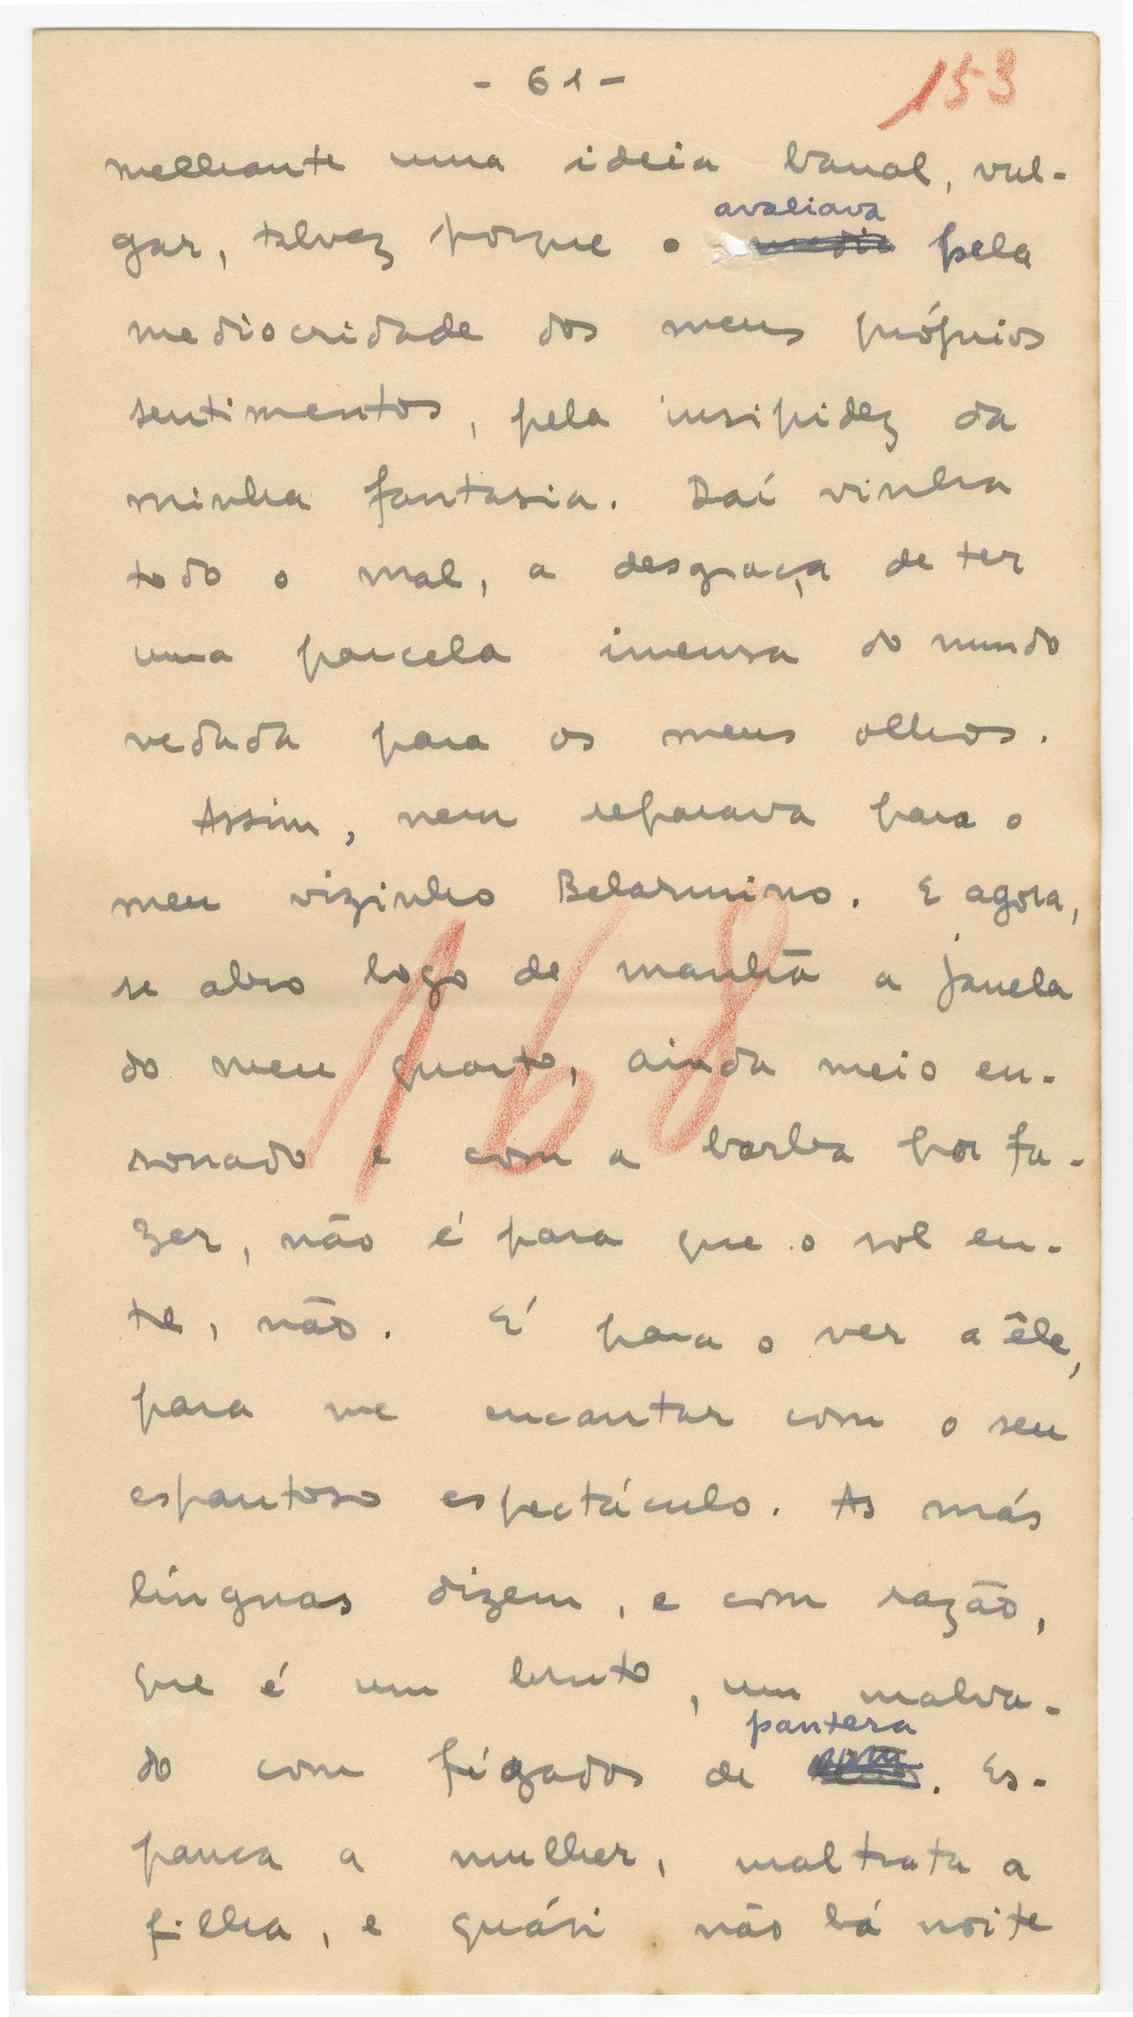 - 61 -
153
melhante uma ideia banal, vul-
avaliava
gar, talvez porque o media pela
mediocridade dos meus próprios
sentimentos, pela insipidez da
minha fantasia. Daí vinha
todo o mal, a desgraça de ter
uma parcela imensa do mundo
vedada para os meus olhos.
Assim, nem reparava para o
meu vizinho Belarmino. E agora,
se abro logo de manhã a janela
do meu quarto, ainda meio en-
sonado e com a barba por fa-
168
zer, não é para que o sol en-
tre, não. É para o ver a êle,
para me encantar com o seu
espantoso espectáculo. As más
línguas dizem, e com razão,
que é um bruto, um malva-
pantera
do com fígados de . Es-
panca a mulher, maltrata a
filha, e quási não há noite